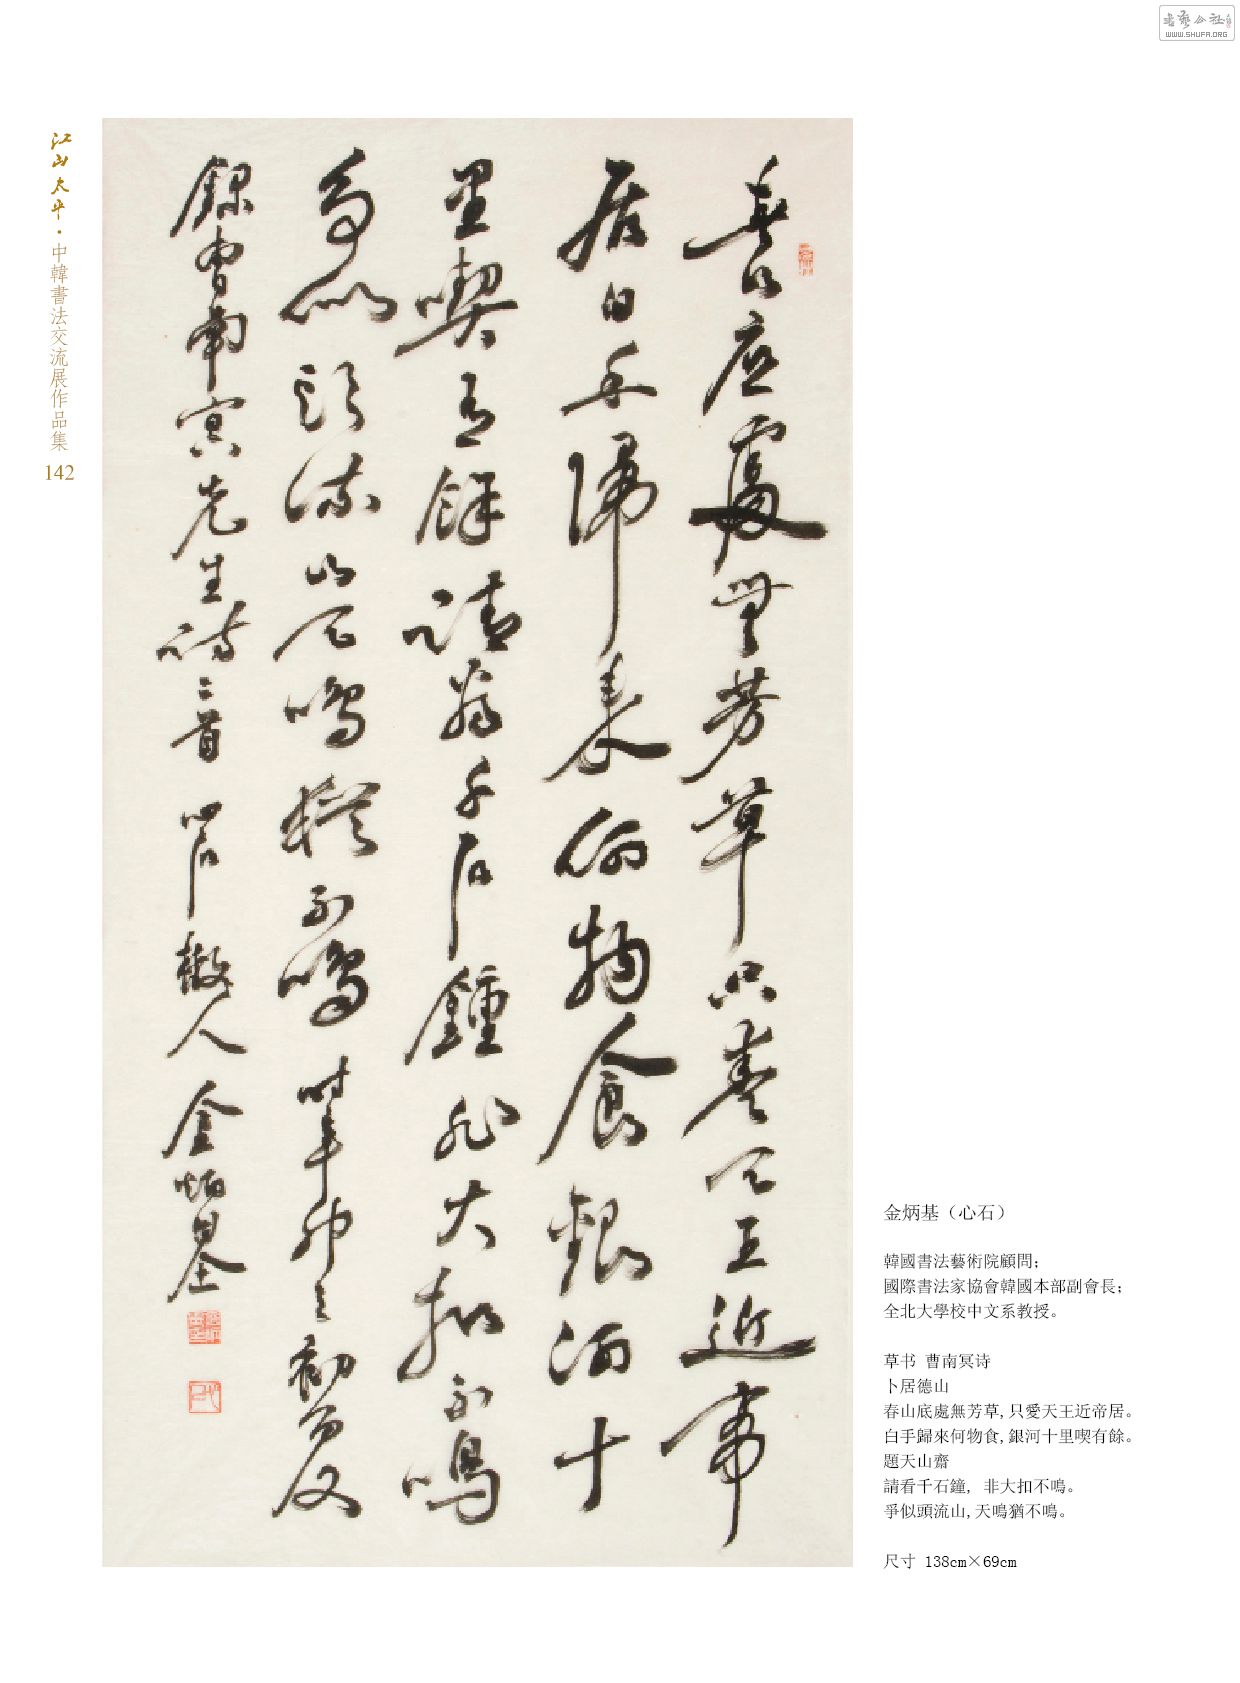 書藝公社
WWW.SHUFA.ORG
江山太平·中韓書法交流展作品集
142
春山底處無芳草只愛天王近帝
居白手歸來何物食銀河十
里喫有餘請看千石鐘非大扣不鳴
爭似頭流山天鳴猶不鳴時辛卯之初夏
錄曹南冥先生詩二首 心石散人 金炳基
金炳基（心石）
韓國書法藝術院顧問；
國際書法家協會韓國本部副會長；
全北大學校中文系教授。
草书 曹南冥诗
卜居德山
春山底處無芳草,只愛天王近帝居。
白手歸來何物食,銀河十里喫有餘。
題天山齋
請看千石鐘, 非大扣不鳴。
爭似頭流山,天鳴猶不鳴。
尺寸 138cm×69cm